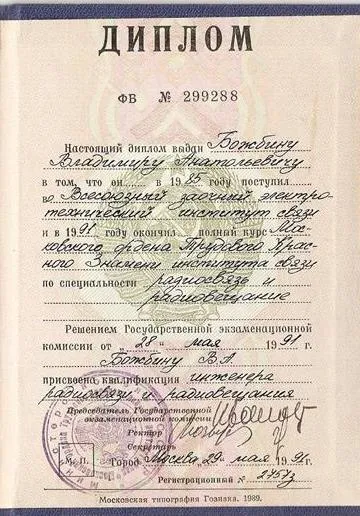 ДИПЛОМ
ФВ № 299288
Настоящий диплом выдан Божбину
Владимиру Анатольевичу
в том, что он в 1985 году поступил
во Всесоюзный заочный электро-
технический институт связи
и в 1991 году окончил полный курс Мос-
ковского ордена Трудового Крас-
ного Знамени института связи
по специальности радиосвязь и
радиовещание
Решением Государственной экзаменационной
комиссии от "28" мая 1991 г.
Божбину В.А.
присвоена квалификация инженера
радиосвязи и радиовещания
Председатель Государственной
экзаменационной комиссии
Ректор
Секретарь
М. П. Город Москва, 29 мая 1991 г.
Регистрационный №
Московская типография Гознака. 1989.